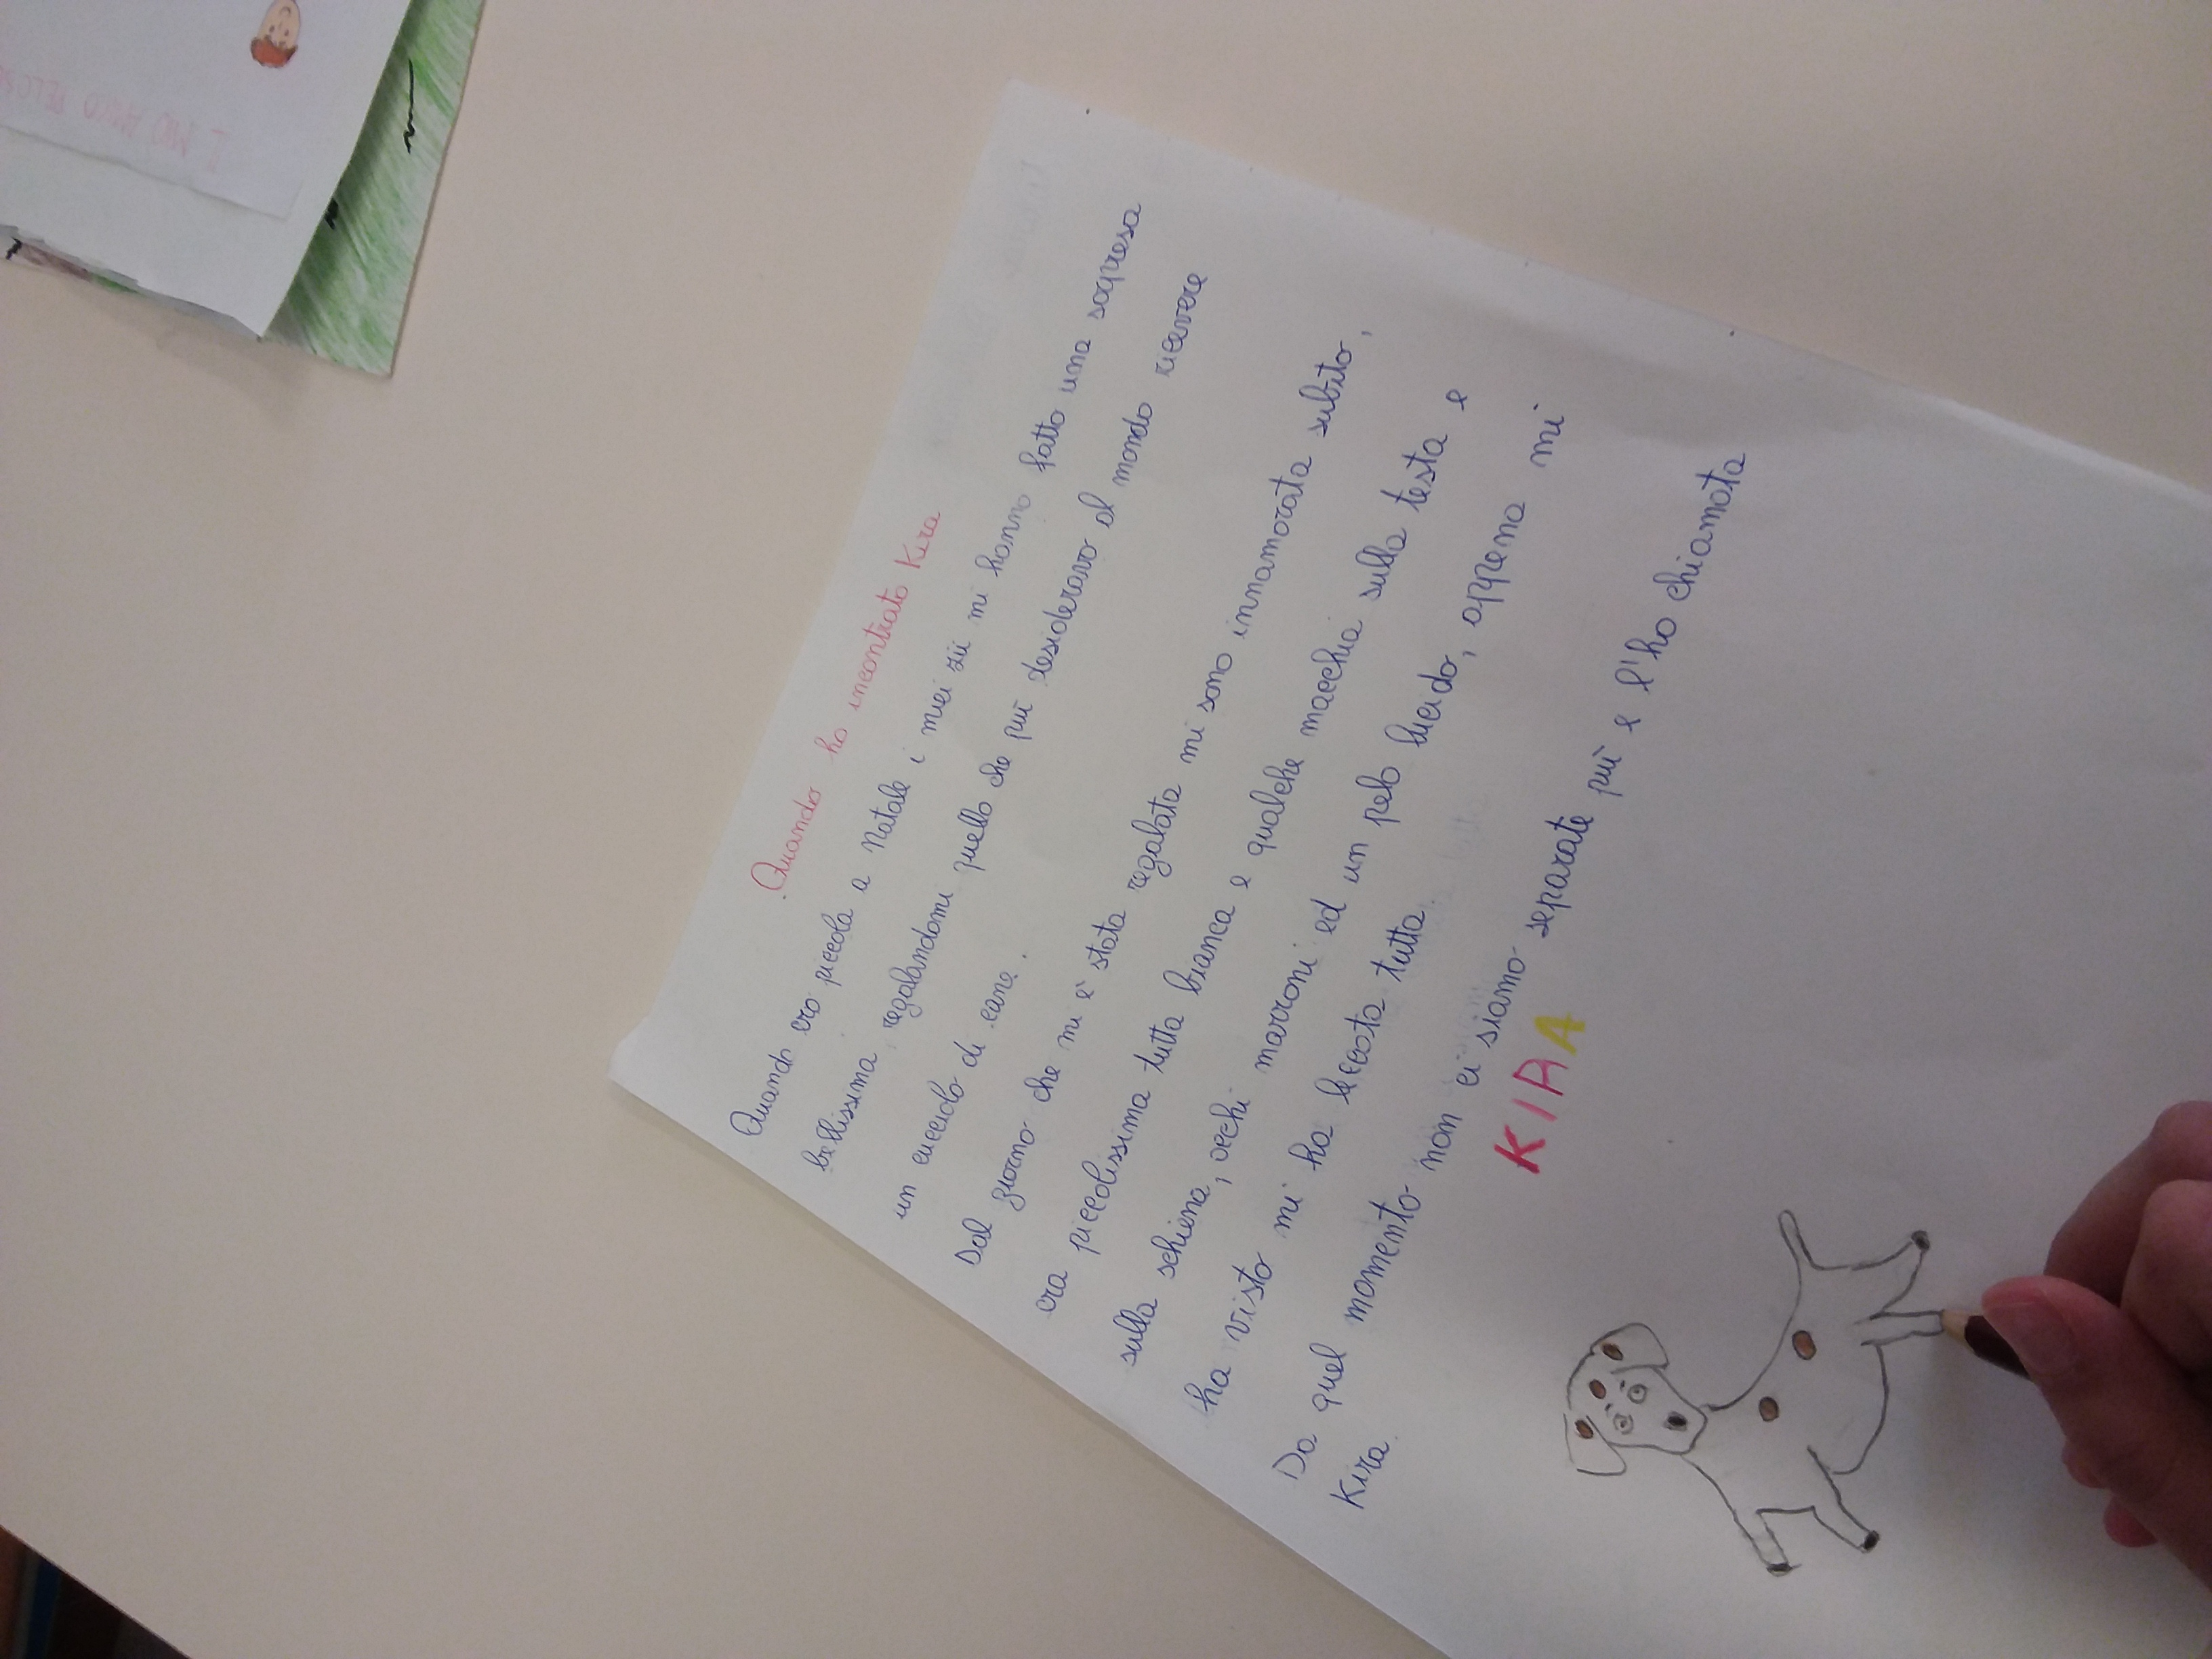 Quando ho incontrato Kira
Quando ero piccola a Natale i miei zii mi hanno fatto una sorpresa
bellissima regalandomi quello che più desideravo al mondo ricevere
un cucciolo di cane.
Dal giorno che mi è stata regalata mi sono innamorata subito,
era piccolissima tutta bianca e qualche macchia sulla testa e
sulla schiena, occhi marroni ed un pelo lucido, appena mi
ha visto mi ha leccata tutta.
Da quel momento non ci siamo separate più e l'ho chiamata
Kira.
KIRA
IL MIO AMICO